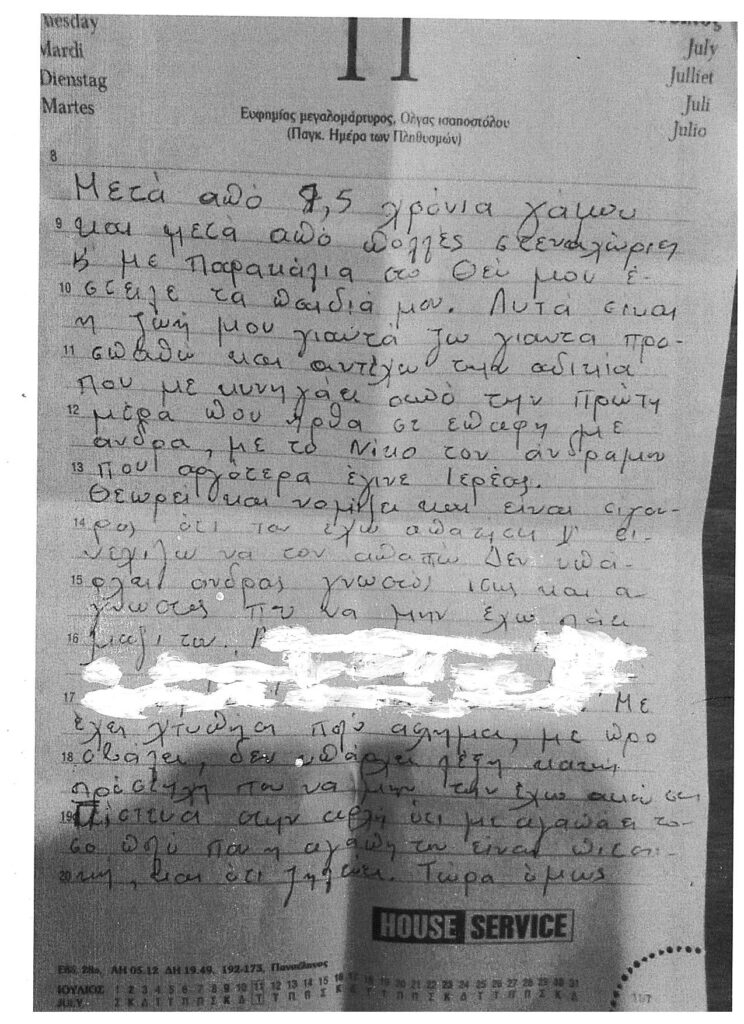 Tuesday
Mardi
Dienstag
Martes
11
July
Julliet
Juli
Julio
Ευφημίας μεγαλομάρτυρος, Όλγας ισαποστόλου
(Παγκ. Ημέρα των Πληθυσμών)
8
Μετά από 7,5 χρόνια γάμου
9 και μετά από πολλές στεναχώριες
κ' με παρακάλια στο Θεό μου έ-
10 στειλε τα παιδιά μου. Αυτά είναι
η ζωή μου γιαυτά ζω γιαυτα προ-
11 σπαθώ και αντέχω την αδικία
που με κυνηγάει από την πρώτη
12 μέρα που ήρθα σε επαφη με
άνδρα, με το Νίκο τον άνδραμου
13 που αργότερα έγινε Ιερέας.
Θεωρεί και νομίζει και είναι σιγου-
14 ρος ότι τον έχω απατήσει κ' συ-
νεχίζω να τον απατώ Δεν υπά-
15 ρχει άνδρας γνωστός ισως και α-
γνωστος που να μην έχω πάει
16 μαζί του.
17 Με
έχει χτυπήσει πολύ άσχημα, με προ
18 σβάλει, δεν υπάρχει λέξη κατη
που να μην την έχω ακούσει
19 Πίστευα στην αρχή ότι με αγαπάει το-
σο πολύ που η αγάπη του είναι
20 και ότι ζηλεύει. Τώρα όμως
HOUSE SERVICE
ΕΒΔ. 28α, ΑΗ 05.12 ΔΗ 19.49, 192-173, Πανσέληνος
ΙΟΥΛΙΟΣ 1 2 3 4 5 6 7 8 9 10 11 12 13 14 15 16 17 18 19 20 21 22 23 24 25 26 27 28 29 30 31
JULY Σ Κ Δ Τ Τ Π Π Σ Κ Δ Τ Τ Π Π Σ Κ
11/7